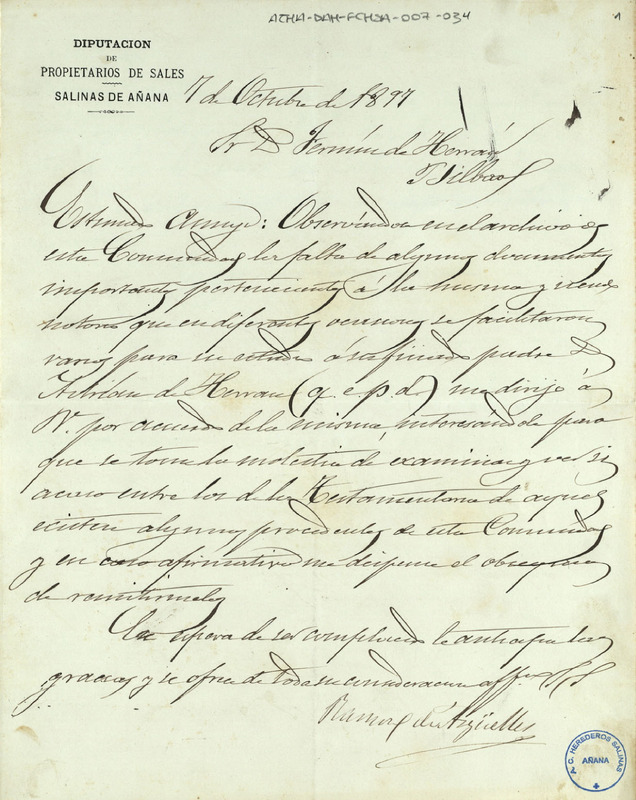 ATHA-DAH-FCHSA-007-034
DIPUTACION
DE
PROPIETARIOS DE SALES
SALINAS DE AÑANA
7 de Octubre de 1897
Sr D Fermín de Herrán
Bilbao
Estimado amigo: Observándose en el archivo de
esta Comunidad la falta de algunos documentos
importantes pertenecientes á la misma y siendo
notorio que en diferentes ocasiones se facilitaron
varios para su estudio á su finado padre D
Adrián de Herran (q. e. p. d.) me dirijo á
V. por acuerdo de la misma, interesándole para
que se tome la molestia de examinar y ver si
acaso entre los de la Testamentaria de aquel
existen algunos procedentes de esta Comunidad
y en caso afirmativo me dispense el obsequio
de remitirmelos
En espera de ser complacido le anticipa las
gracias y se ofrece de V. de toda su consideracion affmo S S
Ramon de Argüelles
A. C. HEREDEROS SALINAS
AÑANA